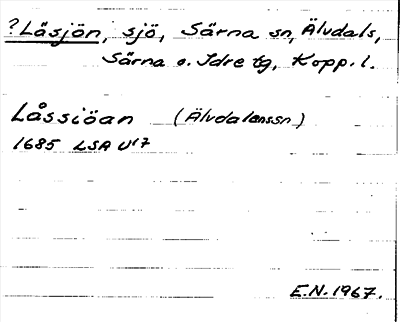 ?Låsjön, sjö, Särna sn, Älvdals,
Särna o. Idre tg, Kopp. l.
Låssiöan (Älvdalenssn)
1685 LSA U17
E.N. 1967.